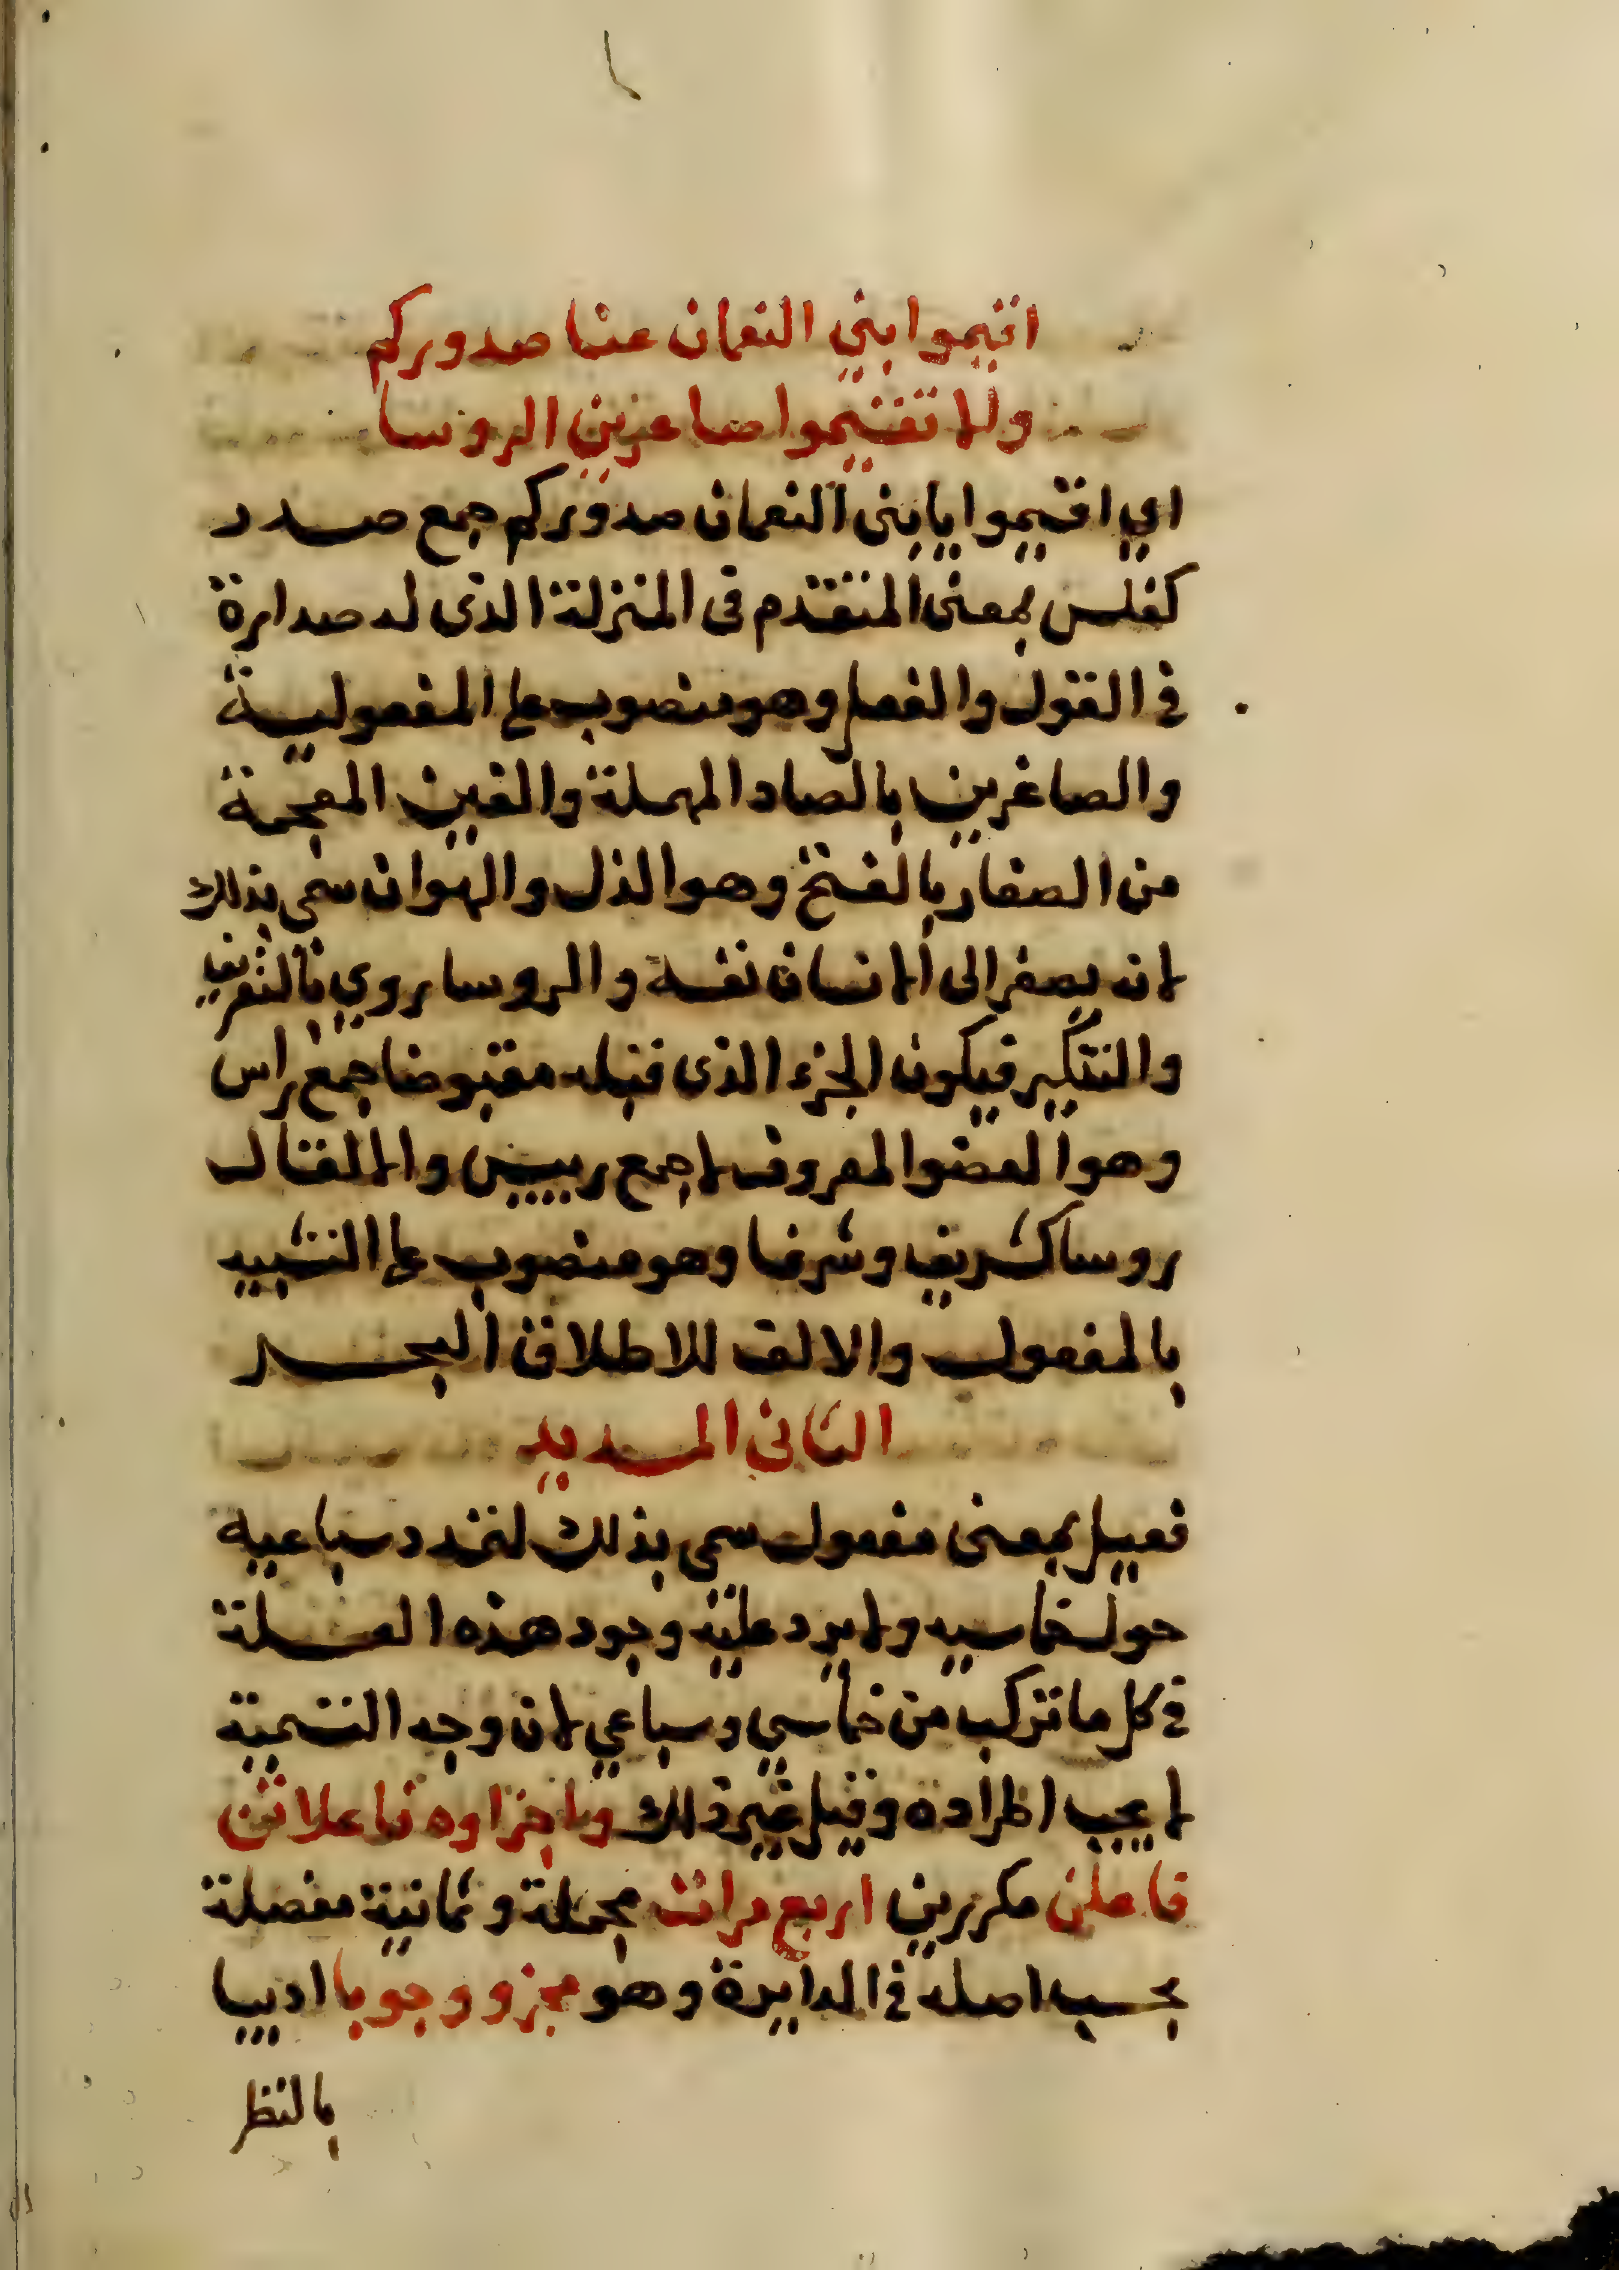 اقيموا بني النعمان عنا صدوركم
ولا تقيموا صاغرين الروسا
اي اقيموا يا بنى النعمان صدوركم جمع صدر
كفلس بمعنى المتقدم فى المنزلة الذى له صدارة
في القول والفعل وهو منصوب على المفعولية
والصاغرين بالصاد المهملة والغين المعجمة
من الصغار بالفتح وهو الذل والهوان سمى بذلك
لانه يصغر الى الانسان نفسه والروسا روي بالتعريف
والتنكير فيكون الجزء الذى قبله مقبوضا جمع راس
وهو العضو المعروف لا جمع رييس والا لقال
روسا كشريف وشرفا وهو منصوب على التشبيه
بالمفعول والالف للاطلاق البحر
الثانى المديد
فعيل بمعنى مفعول سمى بذلك لتمدد سباعيه
حول خماسيه ولا يرد عليه وجود هذه العلة
في كل ما تركب من خماسي وسباعي لان وجه التسمية
لا يجب اطراده وقيل غير ذلك واجزاوه فاعلاتن
فاعلن مكررين اربع مرات مجملة وثمانية مفصلة
بحسب اصله في الدايرة وهو مجزو وجوبا اديبا
بالنظر